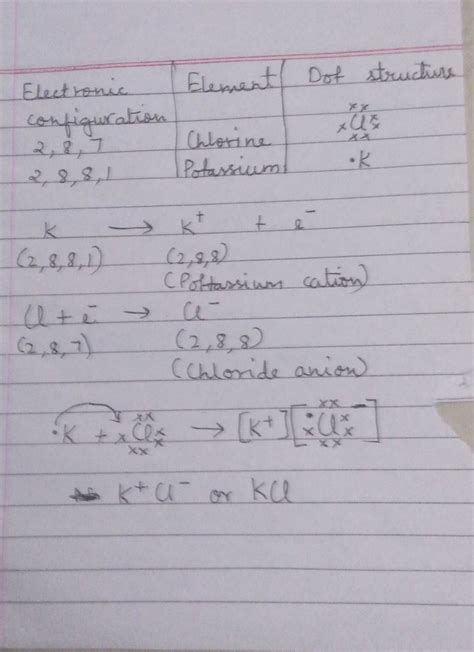 Electronic configuration | Element | Dot structure
2,8,7 | Chlorine | xx xClxx xx
2,8,8,1 | Potassium | •K
K → K⁺ + e⁻
(2,8,8,1) (2,8,8)
(Pottassium cation)
Cl + e⁻ → Cl⁻
(2,8,7) (2,8,8)
(Chloride anion)
•K + xx xClxx xx → [K⁺] [xx •xClxx xx]⁻
K⁺Cl⁻ or KCl